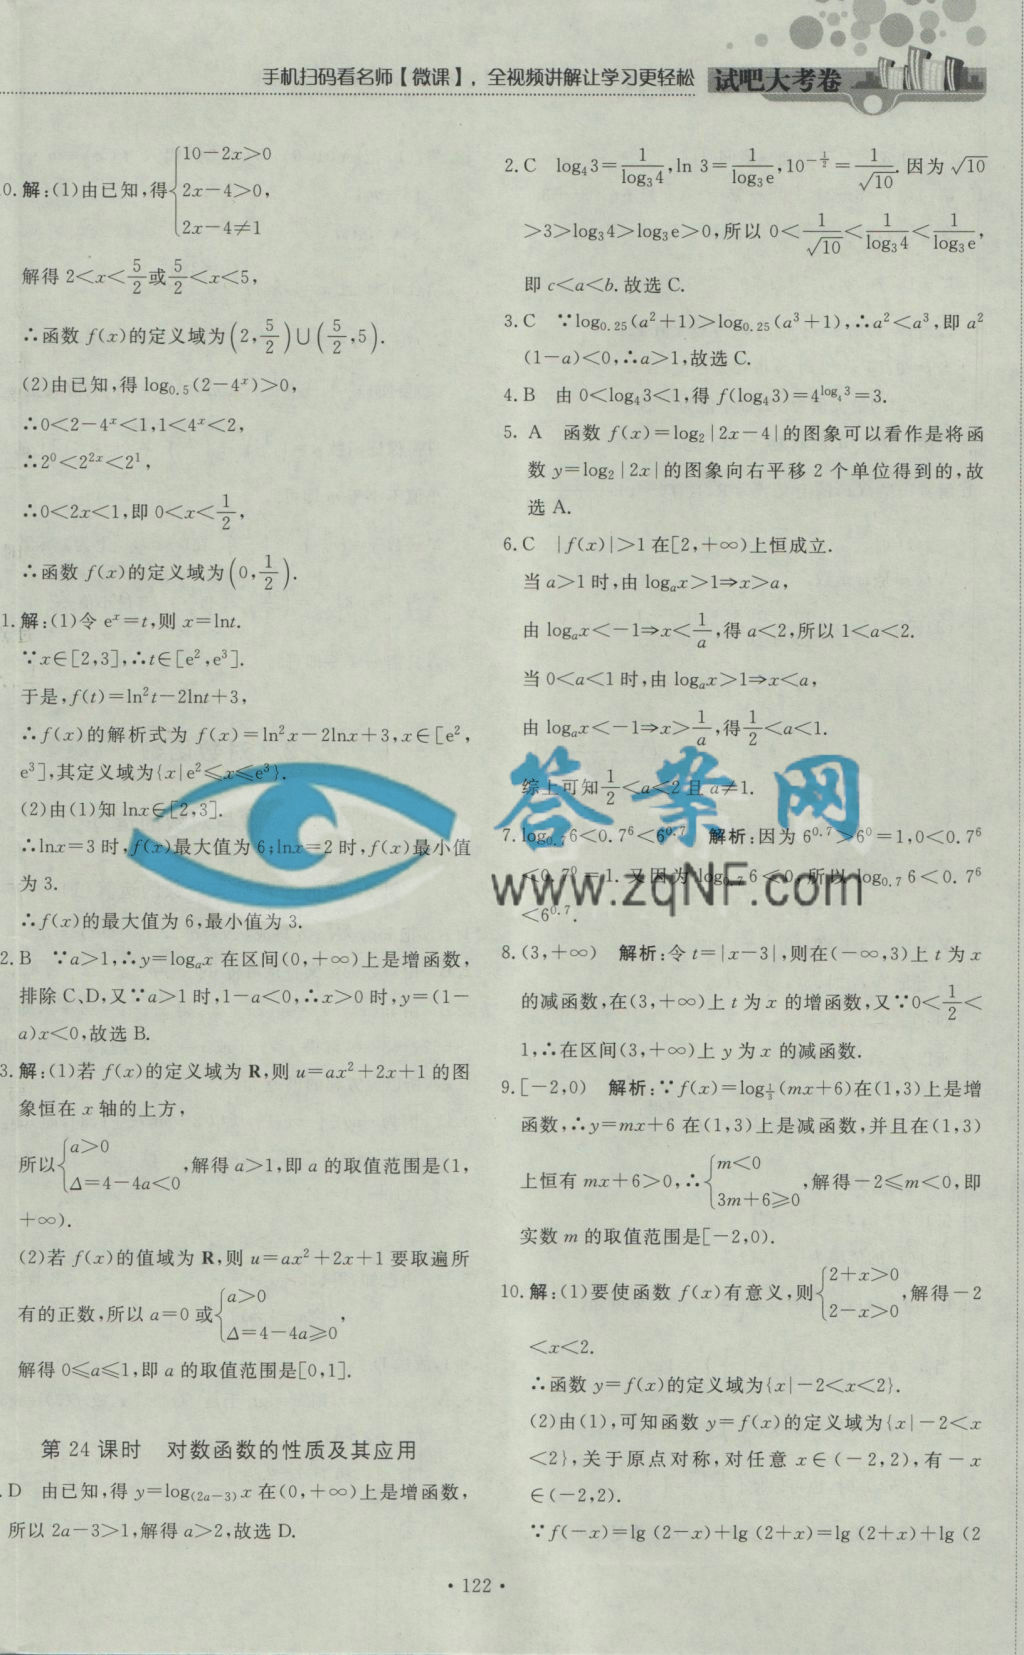 手机扫码看名师【微课】，全视频讲解让学习更轻松 试吧大考卷
0.解:(1)由已知,得{10-2x>0
2x-4>0,
2x-4≠1
解得 2<x<5/2或5/2<x<5,
∴函数 f(x)的定义域为(2,5/2)∪(5/2,5).
(2)由已知,得 log₀.₅(2-4ˣ)>0,
∴0<2-4ˣ<1,1<4ˣ<2,
∴2⁰<2²ˣ<2¹,
∴0<2x<1,即 0<x<1/2,
∴函数 f(x)的定义域为(0,1/2).
1.解:(1)令 eˣ=t,则 x=lnt.
∵x∈[2,3],∴t∈[e²,e³].
于是,f(t)=ln²t-2lnt+3,
∴f(x)的解析式为 f(x)=ln²x-2lnx+3,x∈[e²,
e³],其定义域为{x|e²≤x≤e³}.
(2)由(1)知 lnx∈[2,3].
∴lnx=3 时,f(x)最大值为 6;lnx=2 时,f(x)最小值
为 3.
∴f(x)的最大值为 6,最小值为 3.
2.B ∵a>1,∴y=logₐx 在区间(0,+∞)上是增函数,
排除 C、D,又∵a>1 时,1-a<0,∴x>0 时,y=(1-
a)x<0,故选 B.
3.解:(1)若 f(x)的定义域为 R,则 u=ax²+2x+1 的图
象恒在 x 轴的上方,
所以{a>0
Δ=4-4a<0,解得 a>1,即 a 的取值范围是(1,
+∞).
(2)若 f(x)的值域为 R,则 u=ax²+2x+1 要取遍所
有的正数,所以 a=0 或{a>0
Δ=4-4a≥0,
解得 0≤a≤1,即 a 的取值范围是[0,1].
第 24 课时 对数函数的性质及其应用
.D 由已知,得 y=log₍₂ₐ₋₃₎x 在(0,+∞)上是增函数,
所以 2a-3>1,解得 a>2,故选 D.
2.C log₄3=1/log₃4,ln 3=1/log₃e,10^(-1/2)=1/√10.因为√10
>3>log₃4>log₃e>0,所以 0<1/√10<1/log₃4<1/log₃e,
即 c<a<b.故选 C.
3.C ∵log₀.₂₅(a²+1)>log₀.₂₅(a³+1),∴a²<a³,即 a²
(1-a)<0,∴a>1,故选 C.
4.B 由 0<log₄3<1,得 f(log₄3)=4^(log₄3)=3.
5. A 函数 f(x)=log₂|2x-4|的图象可以看作是将函
数 y=log₂|2x|的图象向右平移 2 个单位得到的,故
选 A.
6.C |f(x)|>1 在[2,+∞)上恒成立.
当 a>1 时,由 logₐx>1⇒x>a,
由 logₐx<-1⇒x<1/a,得 a<2,所以 1<a<2.
当 0<a<1 时,由 logₐx>1⇒x<a,
由 logₐx<-1⇒x>1/a,得1/2<a<1.
综上可知1/2<a<2 且 a≠1.
7.log₀.₇6<0.7⁶<6⁰·⁷ 解析:因为 6⁰·⁷>6⁰=1,0<0.7⁶
<0.7⁰=1.又因为 log₀.₇6<0,所以 log₀.₇6<0.7⁶
<6⁰·⁷.
8.(3,+∞) 解析:令 t=|x-3|,则在(-∞,3)上 t 为 x
的减函数,在(3,+∞)上 t 为 x 的增函数,又∵0<1/2<
1,∴在区间(3,+∞)上 y 为 x 的减函数.
9.[-2,0) 解析:∵f(x)=log_(1/3)(mx+6)在(1,3)上是增
函数,∴y=mx+6 在(1,3)上是减函数,并且在(1,3)
上恒有 mx+6>0,∴{m<0
3m+6≥0,解得-2≤m<0,即
实数 m 的取值范围是[-2,0).
10.解:(1)要使函数 f(x)有意义,则{2+x>0
2-x>0,解得-2
<x<2.
∴函数 y=f(x)的定义域为{x|-2<x<2}.
(2)由(1),可知函数 y=f(x)的定义域为{x|-2<x
<2},关于原点对称,对任意 x∈(-2,2),有-x
∈(-2,2).
∵f(-x)=lg (2-x)+lg (2+x)=lg (2+x)+lg (2
· 122 ·
答案网
www.zqNF.com